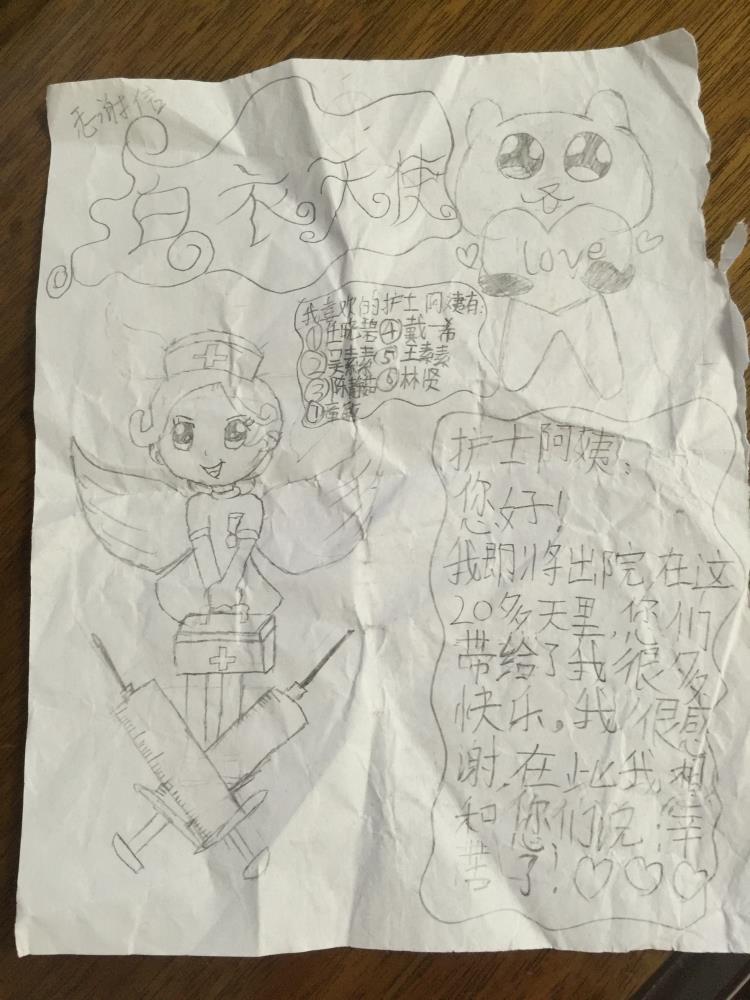 感谢信
白衣天使
love
我喜欢的护士阿姨有:
①王晓碧④戴一希
②吴素素⑤王素素
③陈静茹⑥林贤
护士阿姨:
您好!
我即将出院,在这
20多天里,您们
带给了我很多
快乐。我很感
谢,在此我想
和您们说:辛
苦了!♡♡♡